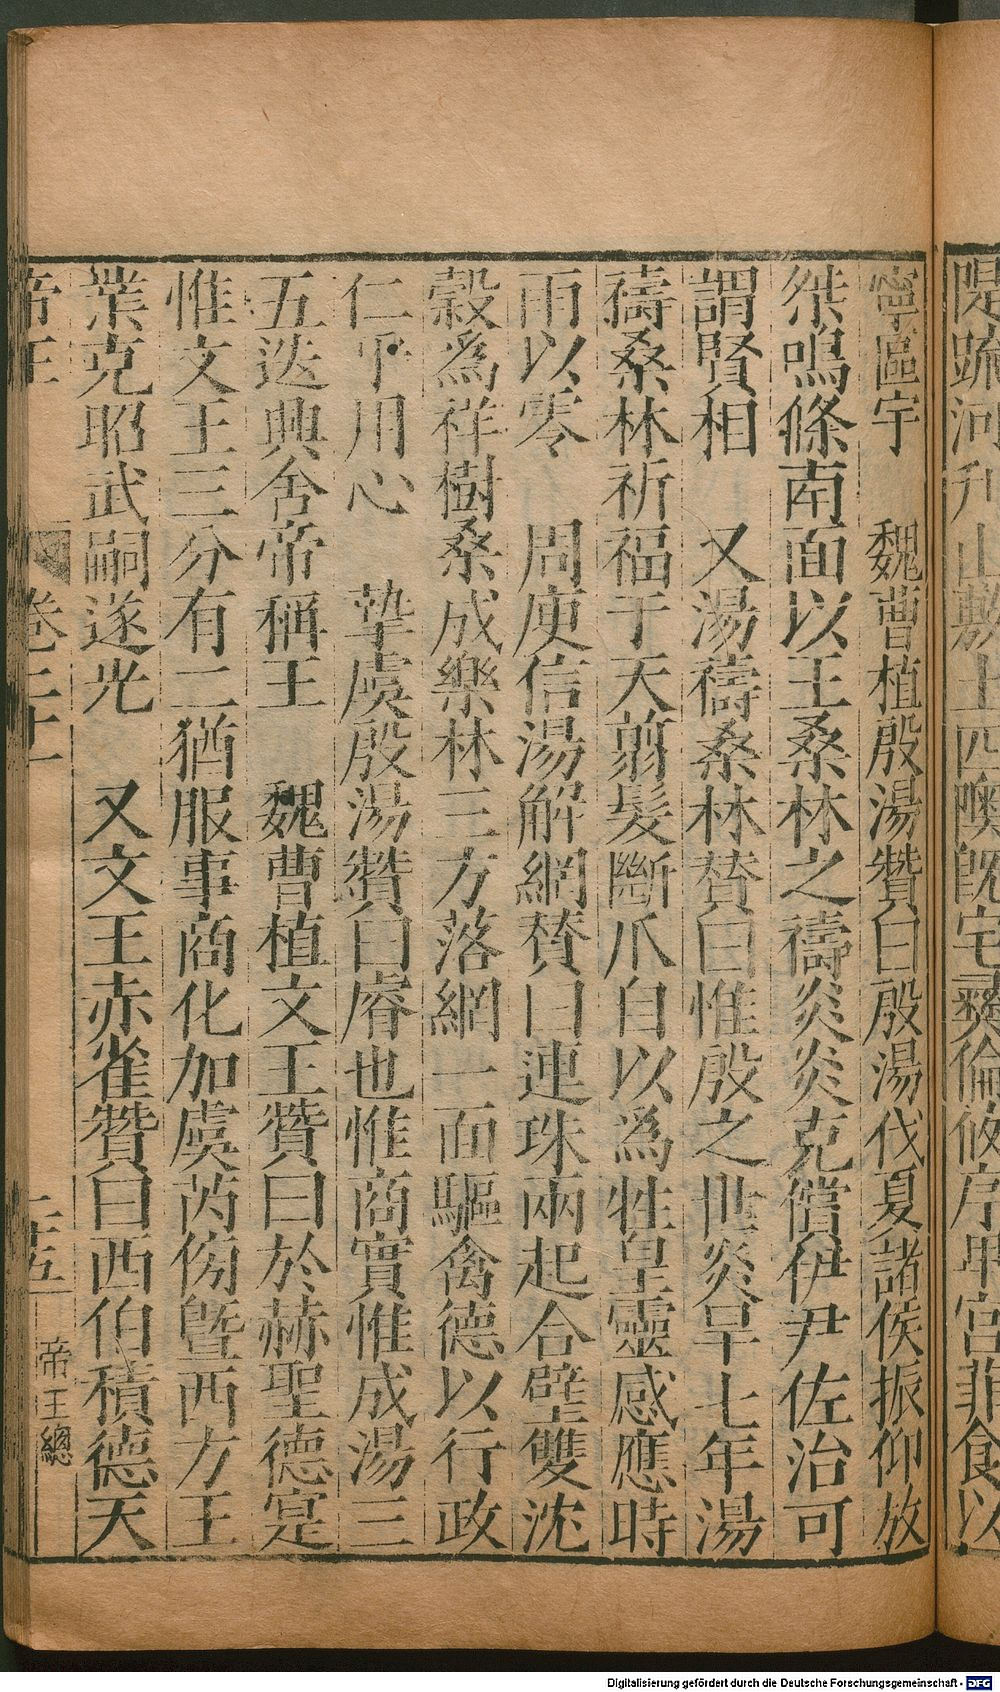 隄疏河刋山敷土四隩旣宅彛倫攸序卑宮菲食以
寧區宇　魏曹植殷湯贊曰殷湯伐夏諸侯振仰放
桀鳴條南面以王桑林之禱炎炎克償伊尹佐治可
謂賢相　又湯禱桑林賛曰惟殷之世炎旱七年湯
禱桑林祈福于天翦髮斷爪自以爲牲皇靈感應時
雨以零　周庾信湯解網賛曰連珠兩起合璧雙沈
穀爲祥樹桑成樂林三方落網一面驅禽德以行政
仁乎用心　摯虞殷湯贊曰睿也惟商實惟成湯三
五迭興舍帝稱王　魏曹植文王贊曰於赫聖德寔
惟文王三分有二猶服事商化加虞芮傍曁西方王
業克昭武嗣遂光　又文王赤雀贊曰西伯積德天
帝王 卷二十 二五 帝王總
Digitalisierung gefördert durch die Deutsche Forschungsgemeinschaft - DFG